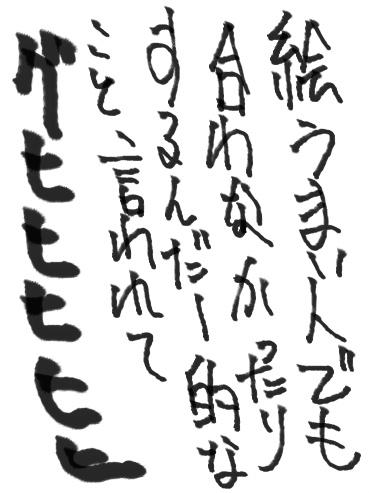 絵うまい人でも
合わなかったり
するんだー的な
こと言われて
グヒヒヒヒヒ